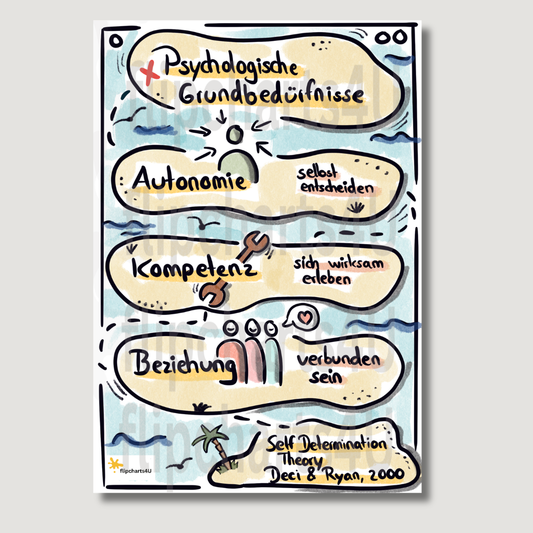 Psychologische
Grundbedürfnisse
Autonomie
selbst
entscheiden
Kompetenz
sich wirksam
erleben
Beziehung
verbunden
sein
Self Determination
Theory
Deci & Ryan, 2000
flipcharts4U
flipcharts4U
flipcharts4U
flipcharts4U
flipcharts4U
flipcharts4U